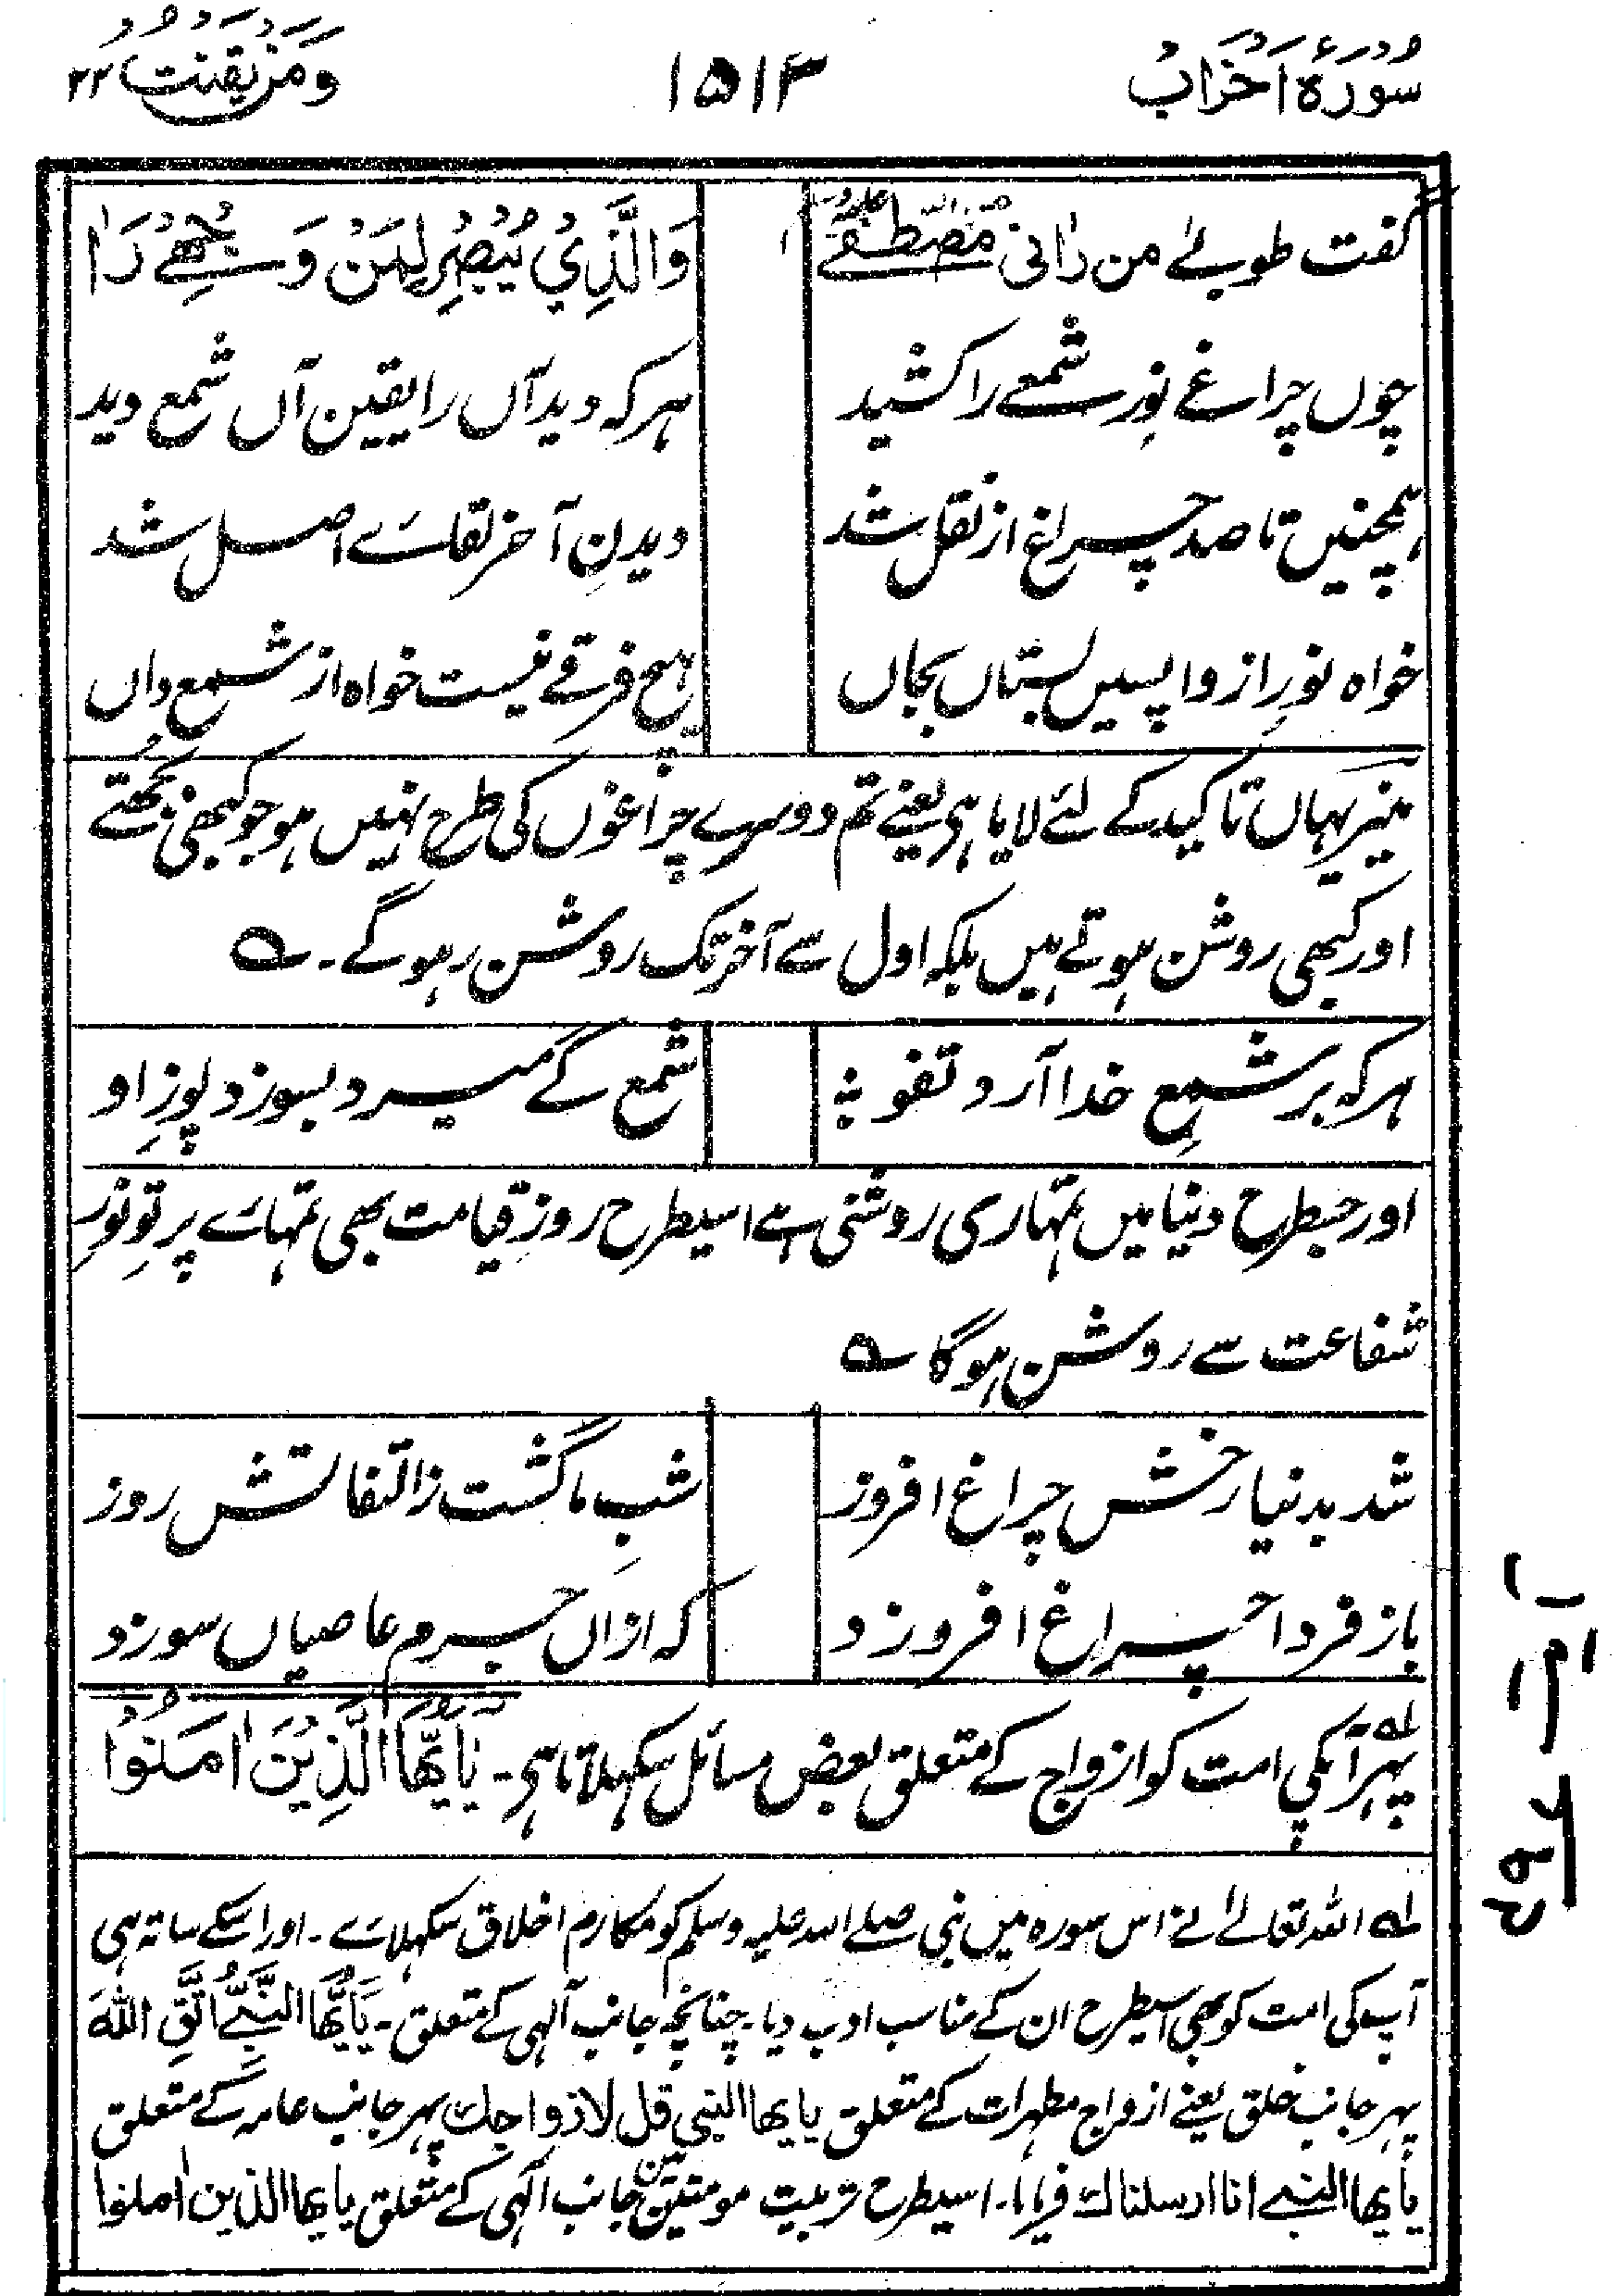 سُورَۂ اَحْزَابْ
۱۵۱۴
وَمَنْ یَّقْنُتْ ۲۲
گفت طوبےٰ من راٰنی مصطفےٰ
وَالَّذِيْ يُبْصِرُ لِمَنْ وَجْهِيْ رَاٰ
چوں چراغے نورِ شمعے را کشید
ہر کہ دید آں را یقین آں شمع دید
ہمچنیں تا صد چراغ از نقل شد
دیدنِ آخر لقائے اصل شد
خواہ نور از واپسیں بستاں بجاں
ہیچ فرقے نیست خواہ از شمع داں
منیر یہاں تاکید کے لئے لایا ہی یعنے تم دوسرے چراغوں کی طرح نہیں ہو جو کبھی بجھتے
اور کبھی روشن ہوتے ہیں بلکہ اول سے آخر تک روشن رہو گے۔ ؎
ہر کہ بر شمعِ خدا آرد تفو ؛
شمع کے میرد بسوزد پوزِ او
اور جسطرح دنیا میں تمہاری روشنی ہے اسیطرح روزِ قیامت بھی تمہارے پرتوِ نورِ
شفاعت سے روشن ہوگا ؎
شد بدنیا رخش چراغ افروز
شبِ ما گشت ز التفاتش روز
باز فردا چراغ افروزد
کہ ازاں جرم عاصیاں سوزد
پہر آپکی امت کو ازواج کے متعلق بعض مسائل سکہلاتا ہی۔ یٰاَیُّهَا الَّذِیْنَ اٰمَنُوْا
لہ اللہ تعالےٰ نے اس سورہ میں نبی صلے اللہ علیہ وسلم کو مکارم اخلاق سکہلائے۔ اور اسکے ساتھ ہی
آپ کی امت کو بھی اسیطرح ان کے مناسب ادب دیا۔ چنانچہ جانب آلہی کے متعلق۔ یَاَیُّهَا النَّبِیُّ اتَّقِ اللهَ
پہر جانب خلق یعنے ازواج مطہرات کے متعلق یایها النبی قل لازواجك پہر جانب عامہ کے متعلق
یایها النبی انا ارسلناك فرمایا۔ اسیطرح تربیت مومنین میں جانب الٰہی کے متعلق یایها الذین اٰمنوا